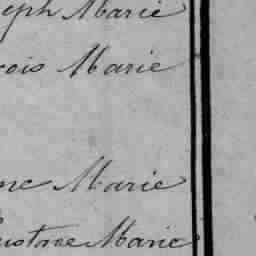 eph Marie
çois Marie
ne Marie
ustave Marie